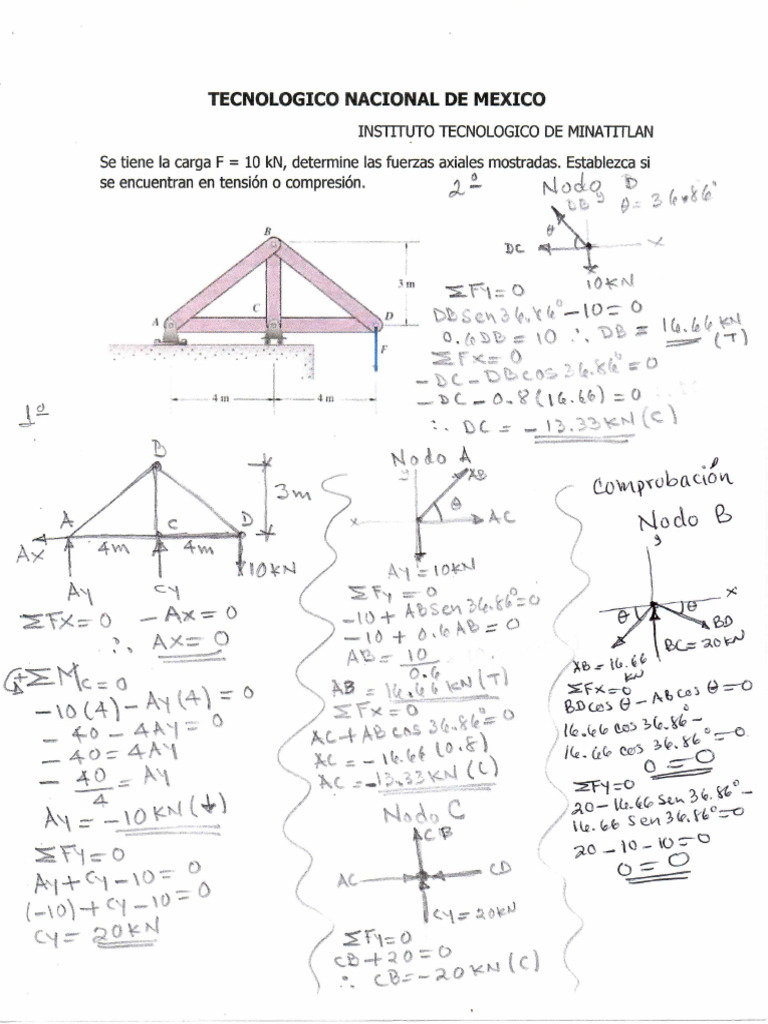 TECNOLOGICO NACIONAL DE MEXICO
INSTITUTO TECNOLOGICO DE MINATITLAN
Se tiene la carga F = 10 kN, determine las fuerzas axiales mostradas. Establezca si
se encuentran en tensión o compresión.
2º
Nodo D
y
DB
θ = 36.86°
θ
DC
x
10KN
ΣFy=0
DB Sen 36.86° - 10 = 0
0.6DB = 10 ∴ DB = 16.66 KN (T)
ΣFx=0
-DC - DB cos 36.86° = 0
-DC - 0.8(16.66) = 0
∴ DC = -13.33KN (C)
B
3 m
C
A
D
F
4 m
4 m
1º
B
3m
A
C
D
Ax
4m
4m
10KN
Ay
Cy
ΣFx=0 -Ax=0
∴ Ax=0
+ΣMc=0
-10(4)-Ay(4)=0
-40-4Ay=0
-40=4Ay
-40/4=Ay
Ay=-10KN(↓)
ΣFy=0
Ay+Cy-10=0
(-10)+Cy-10=0
Cy=20KN
Nodo A
y
AB
θ
x
AC
Ay=10KN
ΣFy=0
-10+AB Sen 36.86°=0
-10+0.6AB=0
AB=10/0.6
AB=16.66 KN(T)
ΣFx=0
AC+AB cos 36.86°=0
AC=-16.66(0.8)
AC=-13.33KN(C)
Nodo C
CB
AC
CD
Cy=20KN
ΣFy=0
CB+20=0
∴ CB=-20KN(C)
Comprobación
Nodo B
y
x
θ
θ
BD
AB=16.66 KN
BC=20KN
ΣFx=0
BD cos θ - AB cos θ = 0
16.66 cos 36.86° -
16.66 cos 36.86° = 0
0=0
ΣFy=0
20-16.66 Sen 36.86° -
16.66 Sen 36.86°=0
20-10-10=0
0=0